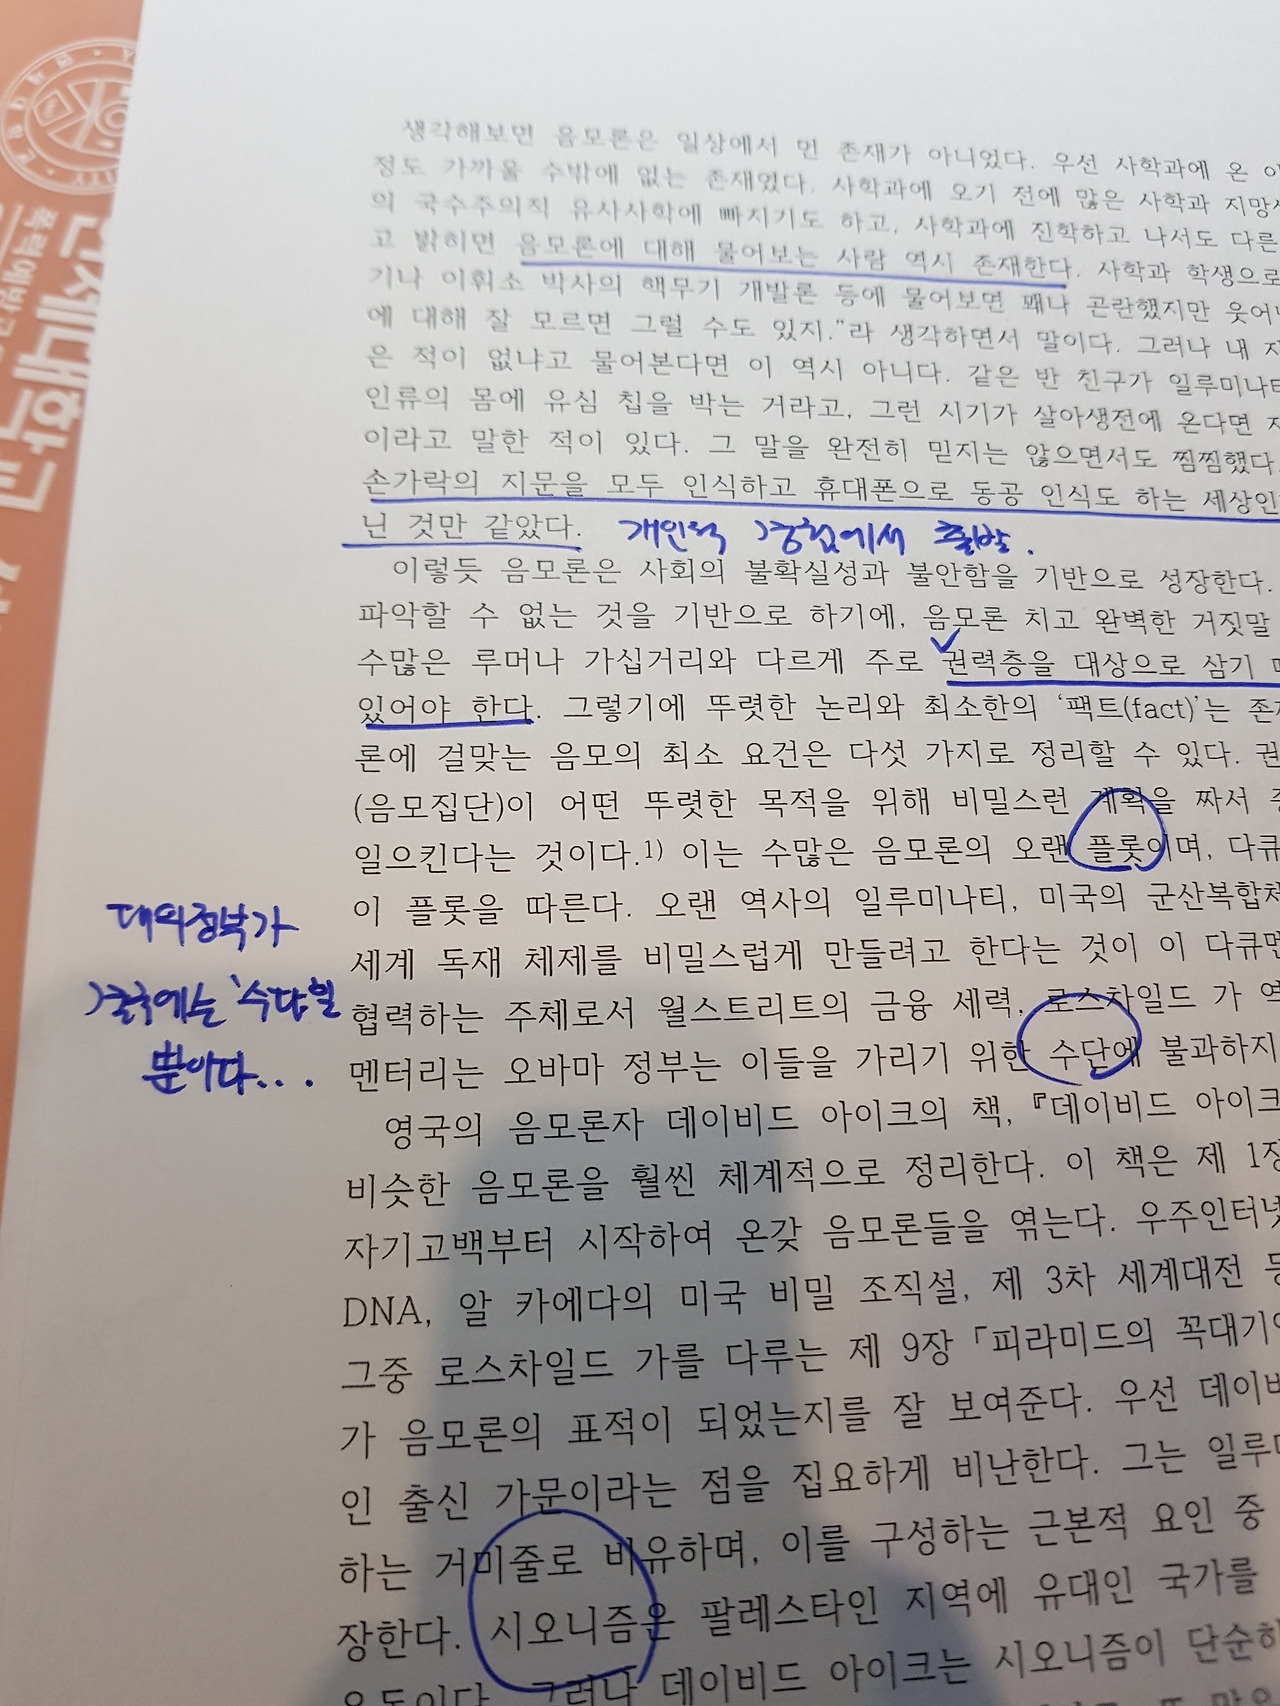 생각해보면 음모론은 일상에서 먼 존재가 아니었다. 우선 사학과에 온 이
정도 가까울 수밖에 없는 존재였다. 사학과에 오기 전에 많은 사학과 지망
의 국수주의적 유사사학에 빠지기도 하고, 사학과에 진학하고 나서도 다른
고 밝히면 음모론에 대해 물어보는 사람 역시 존재한다. 사학과 학생으로
기나 이휘소 박사의 핵무기 개발론 등에 물어보면 꽤나 곤란했지만 웃어
에 대해 잘 모르면 그럴 수도 있지."라 생각하면서 말이다. 그러나 내 자
은 적이 없냐고 물어본다면 이 역시 아니다. 같은 반 친구가 일루미나티
인류의 몸에 유심 칩을 박는 거라고, 그런 시기가 살아생전에 온다면 자
이라고 말한 적이 있다. 그 말을 완전히 믿지는 않으면서도 찜찜했다.
손가락의 지문을 모두 인식하고 휴대폰으로 동공 인식도 하는 세상인
닌 것만 같았다. 개인적 경험에서 출발.
이렇듯 음모론은 사회의 불확실성과 불안함을 기반으로 성장한다.
파악할 수 없는 것을 기반으로 하기에, 음모론 치고 완벽한 거짓말
수많은 루머나 가십거리와 다르게 주로 권력층을 대상으로 삼기 때
있어야 한다. 그렇기에 뚜렷한 논리와 최소한의 '팩트(fact)'는 존재
론에 걸맞는 음모의 최소 요건은 다섯 가지로 정리할 수 있다. 권
(음모집단)이 어떤 뚜렷한 목적을 위해 비밀스런 계획을 짜서 중
일으킨다는 것이다.1) 이는 수많은 음모론의 오랜 플롯이며, 다큐
이 플롯을 따른다. 오랜 역사의 일루미나티, 미국의 군산복합체
세계 독재 체제를 비밀스럽게 만들려고 한다는 것이 이 다큐멘
협력하는 주체로서 월스트리트의 금융 세력, 로스차일드 가 역
멘터리는 오바마 정부는 이들을 가리기 위한 수단에 불과하지
대의정부가
결국에는 '수단'일
뿐이다...
영국의 음모론자 데이비드 아이크의 책, 『데이비드 아이크
비슷한 음모론을 훨씬 체계적으로 정리한다. 이 책은 제 1장
자기고백부터 시작하여 온갖 음모론들을 엮는다. 우주인터넷
DNA, 알 카에다의 미국 비밀 조직설, 제 3차 세계대전 등
그중 로스차일드 가를 다루는 제 9장 「피라미드의 꼭대기에
가 음모론의 표적이 되었는지를 잘 보여준다. 우선 데이비
인 출신 가문이라는 점을 집요하게 비난한다. 그는 일루미
하는 거미줄로 비유하며, 이를 구성하는 근본적 요인 중
장한다. 시오니즘은 팔레스타인 지역에 유대인 국가를
운동이다. 그러나 데이비드 아이크는 시오니즘이 단순히